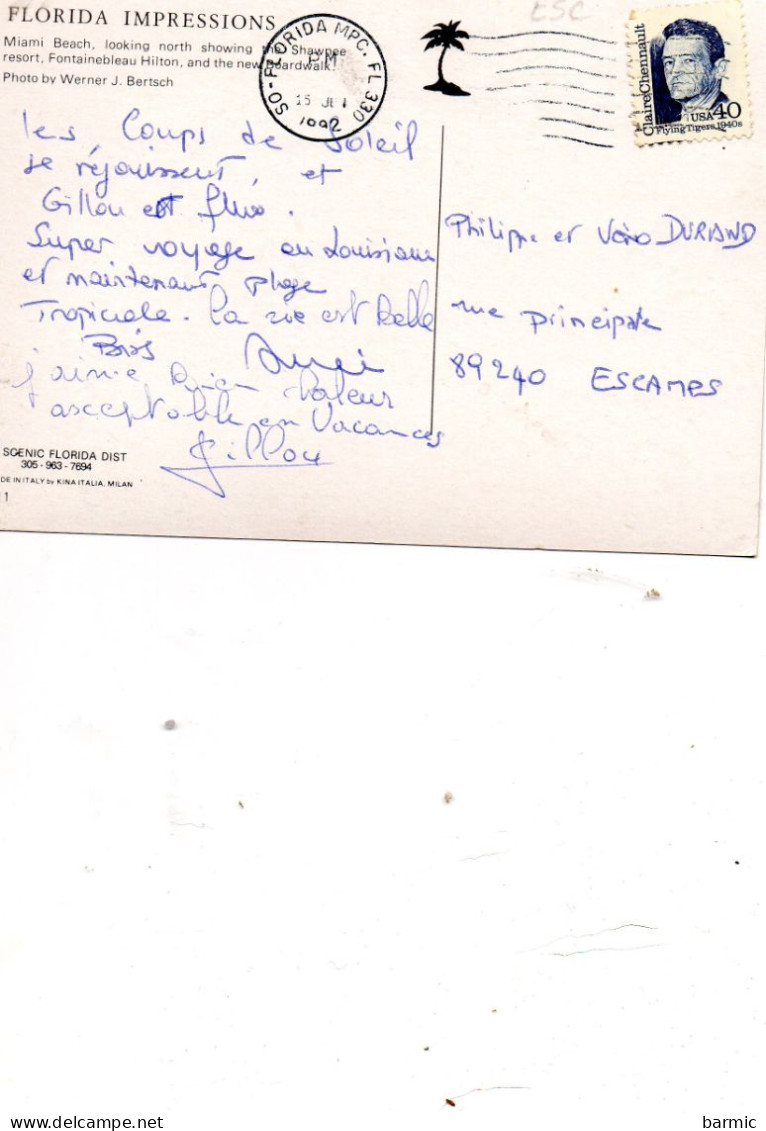 FLORIDA IMPRESSIONS
Miami Beach, looking north showing the Shawnee
resort, Fontainebleau Hilton, and the new boardwalk.
Photo by Werner J. Bertsch
ESC
SO-FLORIDA MPC. FL 330
PM
15
1992
Claire Chennault
USA 40
Flying Tigers, 1940s
les Coups de Soleil
se réjouissent, et
Gillou est fluo.
Super voyage en Louisiane
et maintenant plage
Tropicale. la vie est belle
j'aime bien chaleur
asceptable en Vacances
Gillou
Philippe et Véro DURAND
rue principale
89240 ESCAMPS
SCENIC FLORIDA DIST
305-963-7694
DE IN ITALY by KINA ITALIA, MILAN
1
barmic